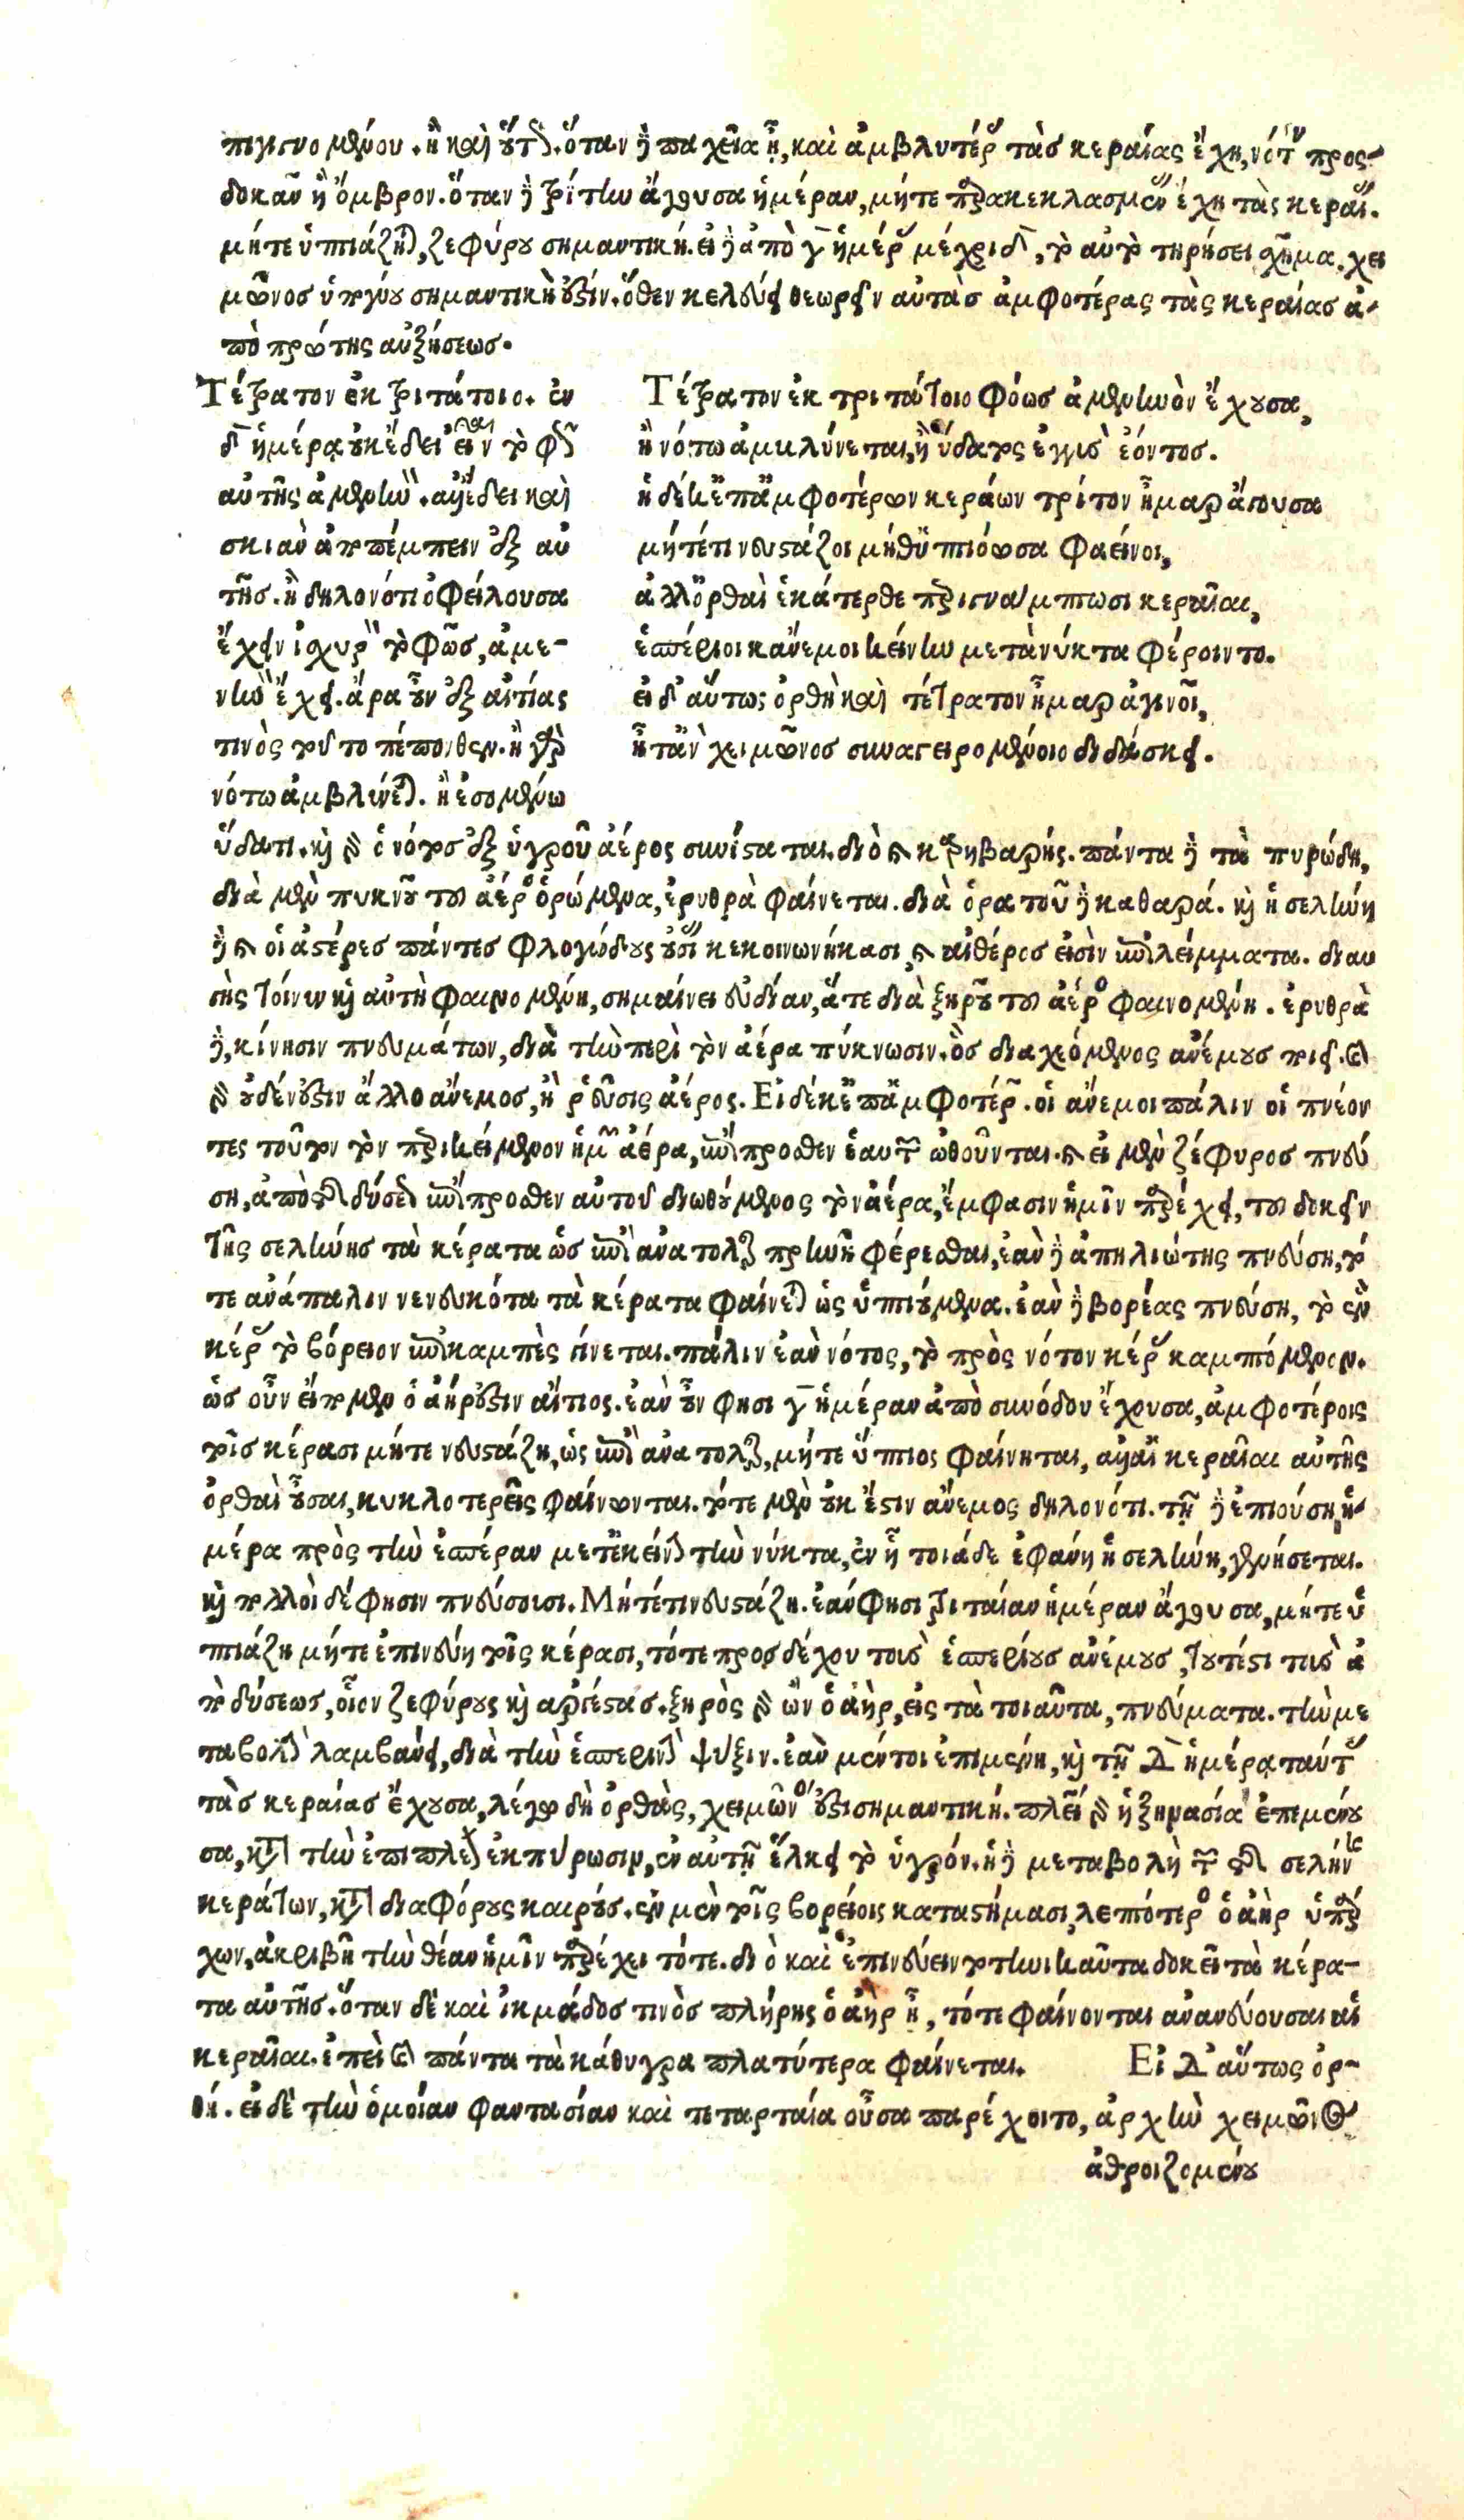 πιγινομένου. ἢ καὶ οὕτως. ὅταν δὲ παχεῖα ᾖ, καὶ ἀμβλυτέρας τὰς κεραίας ἔχῃ, νότον προσ-
δοκᾶν ἢ ὄμβρον. ὅταν δὲ τρίτην ἄγουσα ἡμέραν, μήτε παρακεκλασμένας ἔχῃ τὰς κεραίας.
μήτε ὑπτιάζηται, ζεφύρου σημαντική. εἰ δὲ ἀπὸ γ ἡμέρας μέχρι δ, τὸ αὐτὸ τηρήσει σχῆμα, χει
μῶνος ὑετίου σημαντικὴ ἐστιν. ὅθεν κελεύει θεωρεῖν αὐτὰς ἀμφοτέρας τὰς κεραίας ἀ-
πὸ πρώτης αὐξήσεως.
Τέτρατον ἐκ τριτάτοιο. ἐν
δ ἡμέρᾳ οὐκ ἔδει εἶναι τὸ φῶς
αὐτῆς ἀμενηνόν. ἀλλ' ἔδει καὶ
σκιὰν ἀποπέμπειν ἐξ αὐ
τῆς. ἢ δηλονότι ὀφείλουσα
ἔχειν ἰσχυρὸν τὸ φῶς, ἀμε-
νηνὸν ἔχει. ἄρα οὖν ἐξ αἰτίας
τινὸς τοῦτο πέπονθεν. ἢ γὰρ
νότῳ ἀμβλύνεται. ἢ ἐσομένῳ
Τέτρατον ἐκ τριτάτοιο φόως ἀμενηνὸν ἔχουσα,
ἢ νότῳ ἀμβλύνεται, ἢ ὕδατος ἐγγὺς ἐόντος.
ἡ δέ κ' ἐπ' ἀμφοτέρων κεράων τρίτον ἦμαρ ἄγουσα
μήτέ τι νευστάζοι μήθ' ὑπτιόωσα φαείνοι,
ἀλλ' ὀρθαὶ ἑκάτερθε περιγνάμπτωσι κεραῖαι,
ἑσπέριοι κ' ἄνεμοι κείνην μετὰ νύκτα φέροιντο.
εἰ δ' αὔτως ὀρθὴ καὶ τέτρατον ἦμαρ ἀγινοῖ,
ἦ τ' ἂν χειμῶνος συναγειρομένοιο διδάσκει.
ὕδατι. καὶ γὰρ ὁ νότος ἐξ ὑγροῦ ἀέρος συνίσταται. διὸ καὶ καρηβαρής. πάντα δὲ τὰ πυρώδη,
διὰ μὲν πυκνοῦ τοῦ ἀέρος ὁρώμενα, ἐρυθρὰ φαίνεται. διὰ ὁρατοῦ δὲ καθαρά. καὶ ἡ σελήνη
δὲ καὶ οἱ ἀστέρες πάντες φλογώδους οὐσίας κεκοινωνήκασι, καὶ αἰθέρος εἰσὶν ἀπολείμματα. διαυ
γὴς τοίνυν καὶ αὐτὴ φαινομένη, σημαίνει εὐδίαν, ἅτε διὰ ξηροῦ τοῦ ἀέρος φαινομένη. ἐρυθρὰ
δὲ, κίνησιν πνευμάτων, διὰ τὴν περὶ τὸν ἀέρα πύκνωσιν. ὃς διαχεόμενος ἀνέμους ποιεῖ.
γὰρ οὐδέν ἐστιν ἄλλο ἄνεμος, ἢ ῥεῦσις ἀέρος. Εἰ δέ κ' ἐπ' ἀμφοτέρων. οἱ ἄνεμοι πάλιν οἱ πνέον
τες τοῦτον τὸν περικείμενον ἡμῖν ἀέρα, ἐπίπροσθεν ἑαυτῶν ὠθοῦνται. καὶ εἰ μὲν ζέφυρος πνεύ
σῃ, ἀπὸ τῆς δύσεως ἐπίπροσθεν αὐτοῦ διωθούμενος τὸν ἀέρα, ἔμφασιν ἡμῖν παρέχει, τοῦ δοκεῖν
τῆς σελήνης τὰ κέρατα ὡς ἐπὶ ἀνατολὴν πρηνῆ φέρεσθαι, ἐὰν δὲ ἀπηλιώτης πνεύσῃ, τό
τε ἀνάπαλιν νενευκότα τὰ κέρατα φαίνεται ὡς ὑπτιούμενα. ἐὰν δὲ βορέας πνεύσῃ, τὸ ἓν
κέρας τὸ βόρειον ἐπικαμπὲς γίνεται. πάλιν ἐὰν νότος, τὸ πρὸς νότον κέρας καμπτόμενον.
ὡς οὖν εἴπομεν ὁ ἀήρ ἐστιν αἴτιος. ἐὰν οὖν φησι γ ἡμέραν ἀπὸ συνόδου ἔχουσα, ἀμφοτέροις
τοῖς κέρασι μήτε νευστάζῃ, ὡς ἐπὶ ἀνατολὴν, μήτε ὕπτιος φαίνηται, ἀλλ' αἱ κεραῖαι αὐτῆς
ὀρθαὶ οὖσαι, κυκλοτερεῖς φαίνωνται. τότε μὲν οὐκ ἔστιν ἄνεμος δηλονότι. τῇ δὲ ἐπιούσῃ ἡ-
μέρᾳ πρὸς τὴν ἑσπέραν μετ' ἐκείνην τὴν νύκτα, ἐν ᾗ τοιάδε ἐφάνη ἡ σελήνη, γενήσεται.
καὶ πολλοὶ δέ φησιν πνεύσουσι. Μήτέ τι νευστάζῃ. ἐάν φησι τριταίαν ἡμέραν ἄγουσα, μήτε ὑ
πτιάζῃ μήτε ἐπινεύῃ τοῖς κέρασι, τότε προσδέχου τοὺς ἑσπερίους ἀνέμους, τουτέστι τοὺς ἀ
πὸ δύσεως, οἷον ζεφύρους καὶ ἀργέστας. ξηρὸς γὰρ ὢν ὁ ἀὴρ, εἰς τὰ τοιαῦτα, πνεύματα. τὴν με
ταβολὴν λαμβάνει, διὰ τὴν ἑσπερινὴν ψύξιν. ἐὰν μέντοι ἐπιμένῃ, καὶ τῇ Δ ἡμέρᾳ ταύτας
τὰς κεραίας ἔχουσα, λέγω δὴ ὀρθὰς, χειμῶνός ἐστι σημαντική. πλείων γὰρ ἡ ξηρασία ἐπιμένου
σα, κατὰ τὴν ἐπιπλέον ἐκπύρωσιν, ἐν αὐτῇ ἕλκει τὸ ὑγρόν. ἡ δὲ μεταβολὴ τῶν τῆς σελήνης
κεράτων, κατὰ διαφόρους καιρούς. ἐν μὲν τοῖς βορείοις καταστήμασι, λεπτότερος ὁ ἀὴρ ὑπάρ
χων, ἀκριβῆ τὴν θέαν ἡμῖν παρέχει τότε. διὸ καὶ ἐπινεύειν τηνικαῦτα δοκεῖ τὰ κέρα-
τα αὐτῆς. ὅταν δὲ καὶ ἰκμάδος τινὸς πλήρης ὁ ἀὴρ ᾖ, τότε φαίνονται ἀνανεύουσαι αἱ
κεραῖαι. ἐπεὶ πάντα τὰ κάθυγρα πλατύτερα φαίνεται. Εἰ Δ' αὔτως ὀρ-
θή. εἰ δὲ τὴν ὁμοίαν φαντασίαν καὶ τεταρταία οὖσα παρέχοιτο, ἀρχὴν χειμῶνος
ἀθροιζομένου